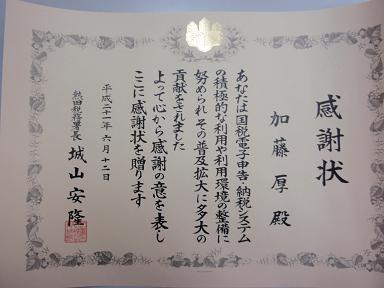 感謝状
加藤厚殿
あなたは国税電子申告・納税システム
の積極的な利用や利用環境の整備に
努められその普及拡大に多大の
貢献をされました
よって心から感謝の意を表し
ここに感謝状を贈ります
平成二十一年六月十二日
熱田税務署長 城山安隆